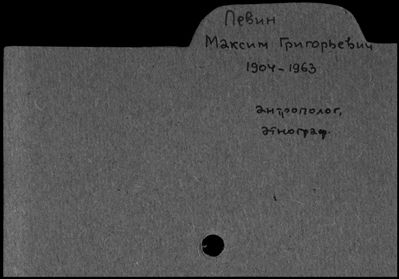 Левин
Максим Григорьевич
1904-1963
антрополог,
этнограф.